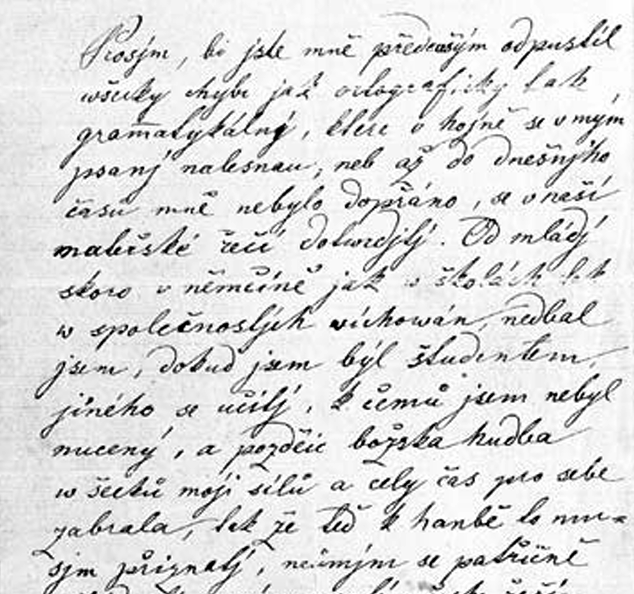 Prosjm, bi jste mně předewšým odpustil
wšecky chybi jak ortograficky tak
gramatykálný, ktere v hojně se v mým
psanj nalesnau, neb až do dnešnjho
času mně nebylo dopřáno, se v naší
mateřské řeči dotwrdjtj. Od mládj
skoro v němčině jak w školách tak
w společnostjch wichowán, nedbal
jsem, dokud jsem býl študentem,
jiného se učitj, k čemů jsem nebyl
nucený, a pozděic božska hudba
wšecků moji sílů a cely čas pro sebe
zabrala, tak že teď k hanbě to mu=
sjm přiznatj, neůmjm se patřičně